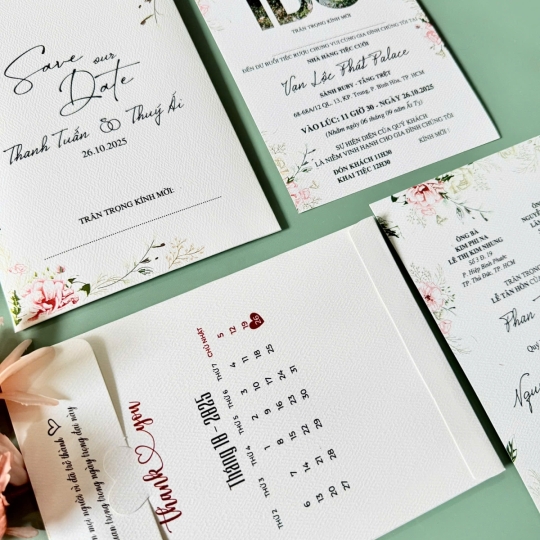 Save our
Date
Thanh Tuấn
Thuý Ái
26.10.2025
TRÂN TRỌNG KÍNH MỜI:
TRÂN TRỌNG KÍNH MỜI
ĐẾN DỰ BUỔI TIỆC RƯỢU CHUNG VUI CÙNG GIA ĐÌNH CHÚNG TÔI TẠI
NHÀ HÀNG TIỆC CƯỚI
Vạn Lộc Phát Palace
SẢNH RUBY - TẦNG TRỆT
68-68A/12 QL. 13, KP. Trung, P. Bình Hòa, TP. HCM
VÀO LÚC: 11 GIỜ 30 - NGÀY 26.10.2025
(Nhằm ngày 06 tháng 09 năm Ất Tỵ)
SỰ HIỆN DIỆN CỦA QUÝ KHÁCH
LÀ NIỀM VINH HẠNH CHO GIA ĐÌNH CHÚNG TÔI
KÍNH MỜI :
ĐÓN KHÁCH 11H30
KHAI TIỆC 12H30
ÔNG BÀ
KIM PHI NA
LÊ THỊ KIM NHUNG
Số 3 Đ. 19
P. Hiệp Bình Phước
TP. Thủ Đức, TP. HCM
TRÂN TRỌNG
LÊ TÂN HÔN CỦ
Phan
Quý
thank you
Tháng 10 - 2025
THỨ 2 THỨ 3 THỨ 4 THỨ 5 THỨ 6 THỨ 7 CHỦ NHẬT
1 2 3 4 5
6 7 8 9 10 11 12
13 14 15 16 17 18 19
20 21 22 23 24 25 26
27 28 29 30 31